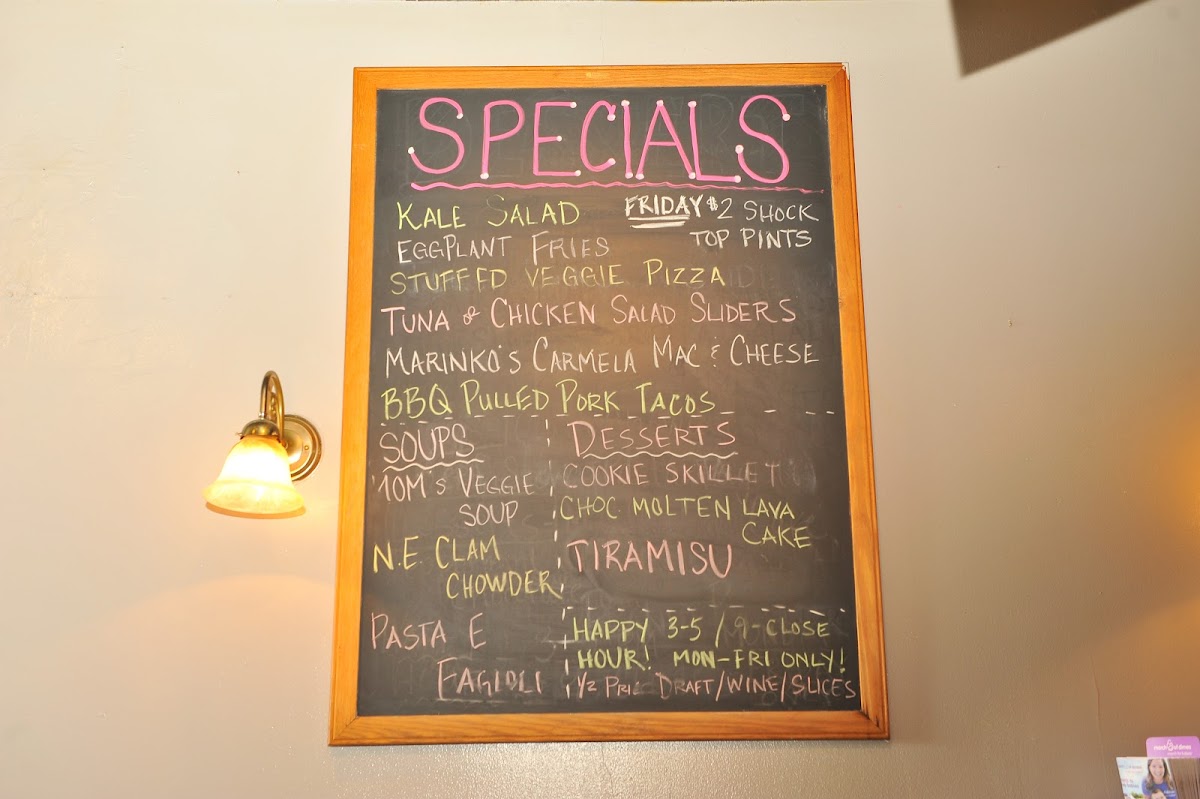 SPECIALS
KALE SALAD
FRIDAY $2 SHOCK
TOP PINTS
EGGPLANT FRIES
STUFFD VEGGIE PIZZA
TUNA or CHICKEN SALAD SLIDERS
MARINKO'S CARMELA MAC & CHEESE
BBQ PULLED PORK TACOS
SOUPS
TOM'S VEGGIE
SOUP
N.E. CLAM
CHOWDER
PASTA E
FAGIOLI
DESSERTS
COOKIE SKILLET
CHOC MOLTEN LAVA
CAKE
TIRAMISU
HAPPY 3-5 / 9-CLOSE
HOUR! MON-FRI ONLY!
1/2 PRIC DRAFT/WINE/SLICES